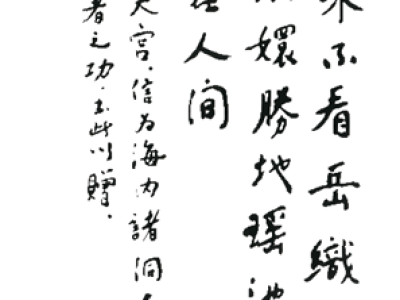 来不看岳織
嬛勝地瑶池
在人间
天宫，信为海内諸洞
者之功．书此以贈．